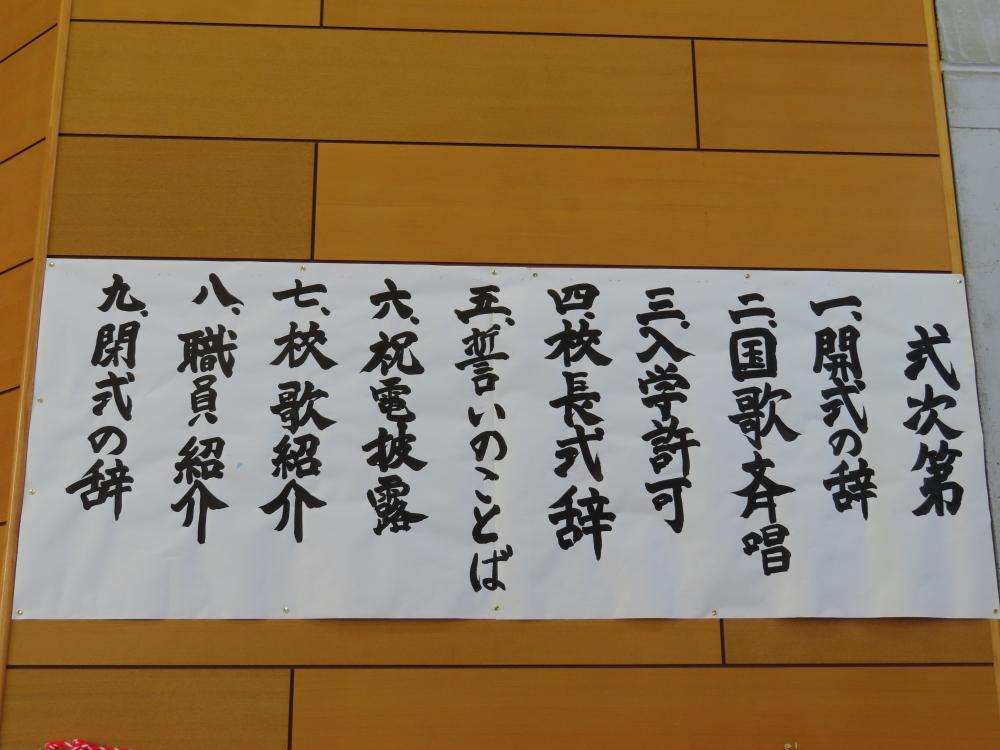 式次第
一、開式の辞
二、国歌斉唱
三、入学許可
四、校長式辞
五、誓いのことば
六、祝電披露
七、校歌紹介
八、職員紹介
九、閉式の辞